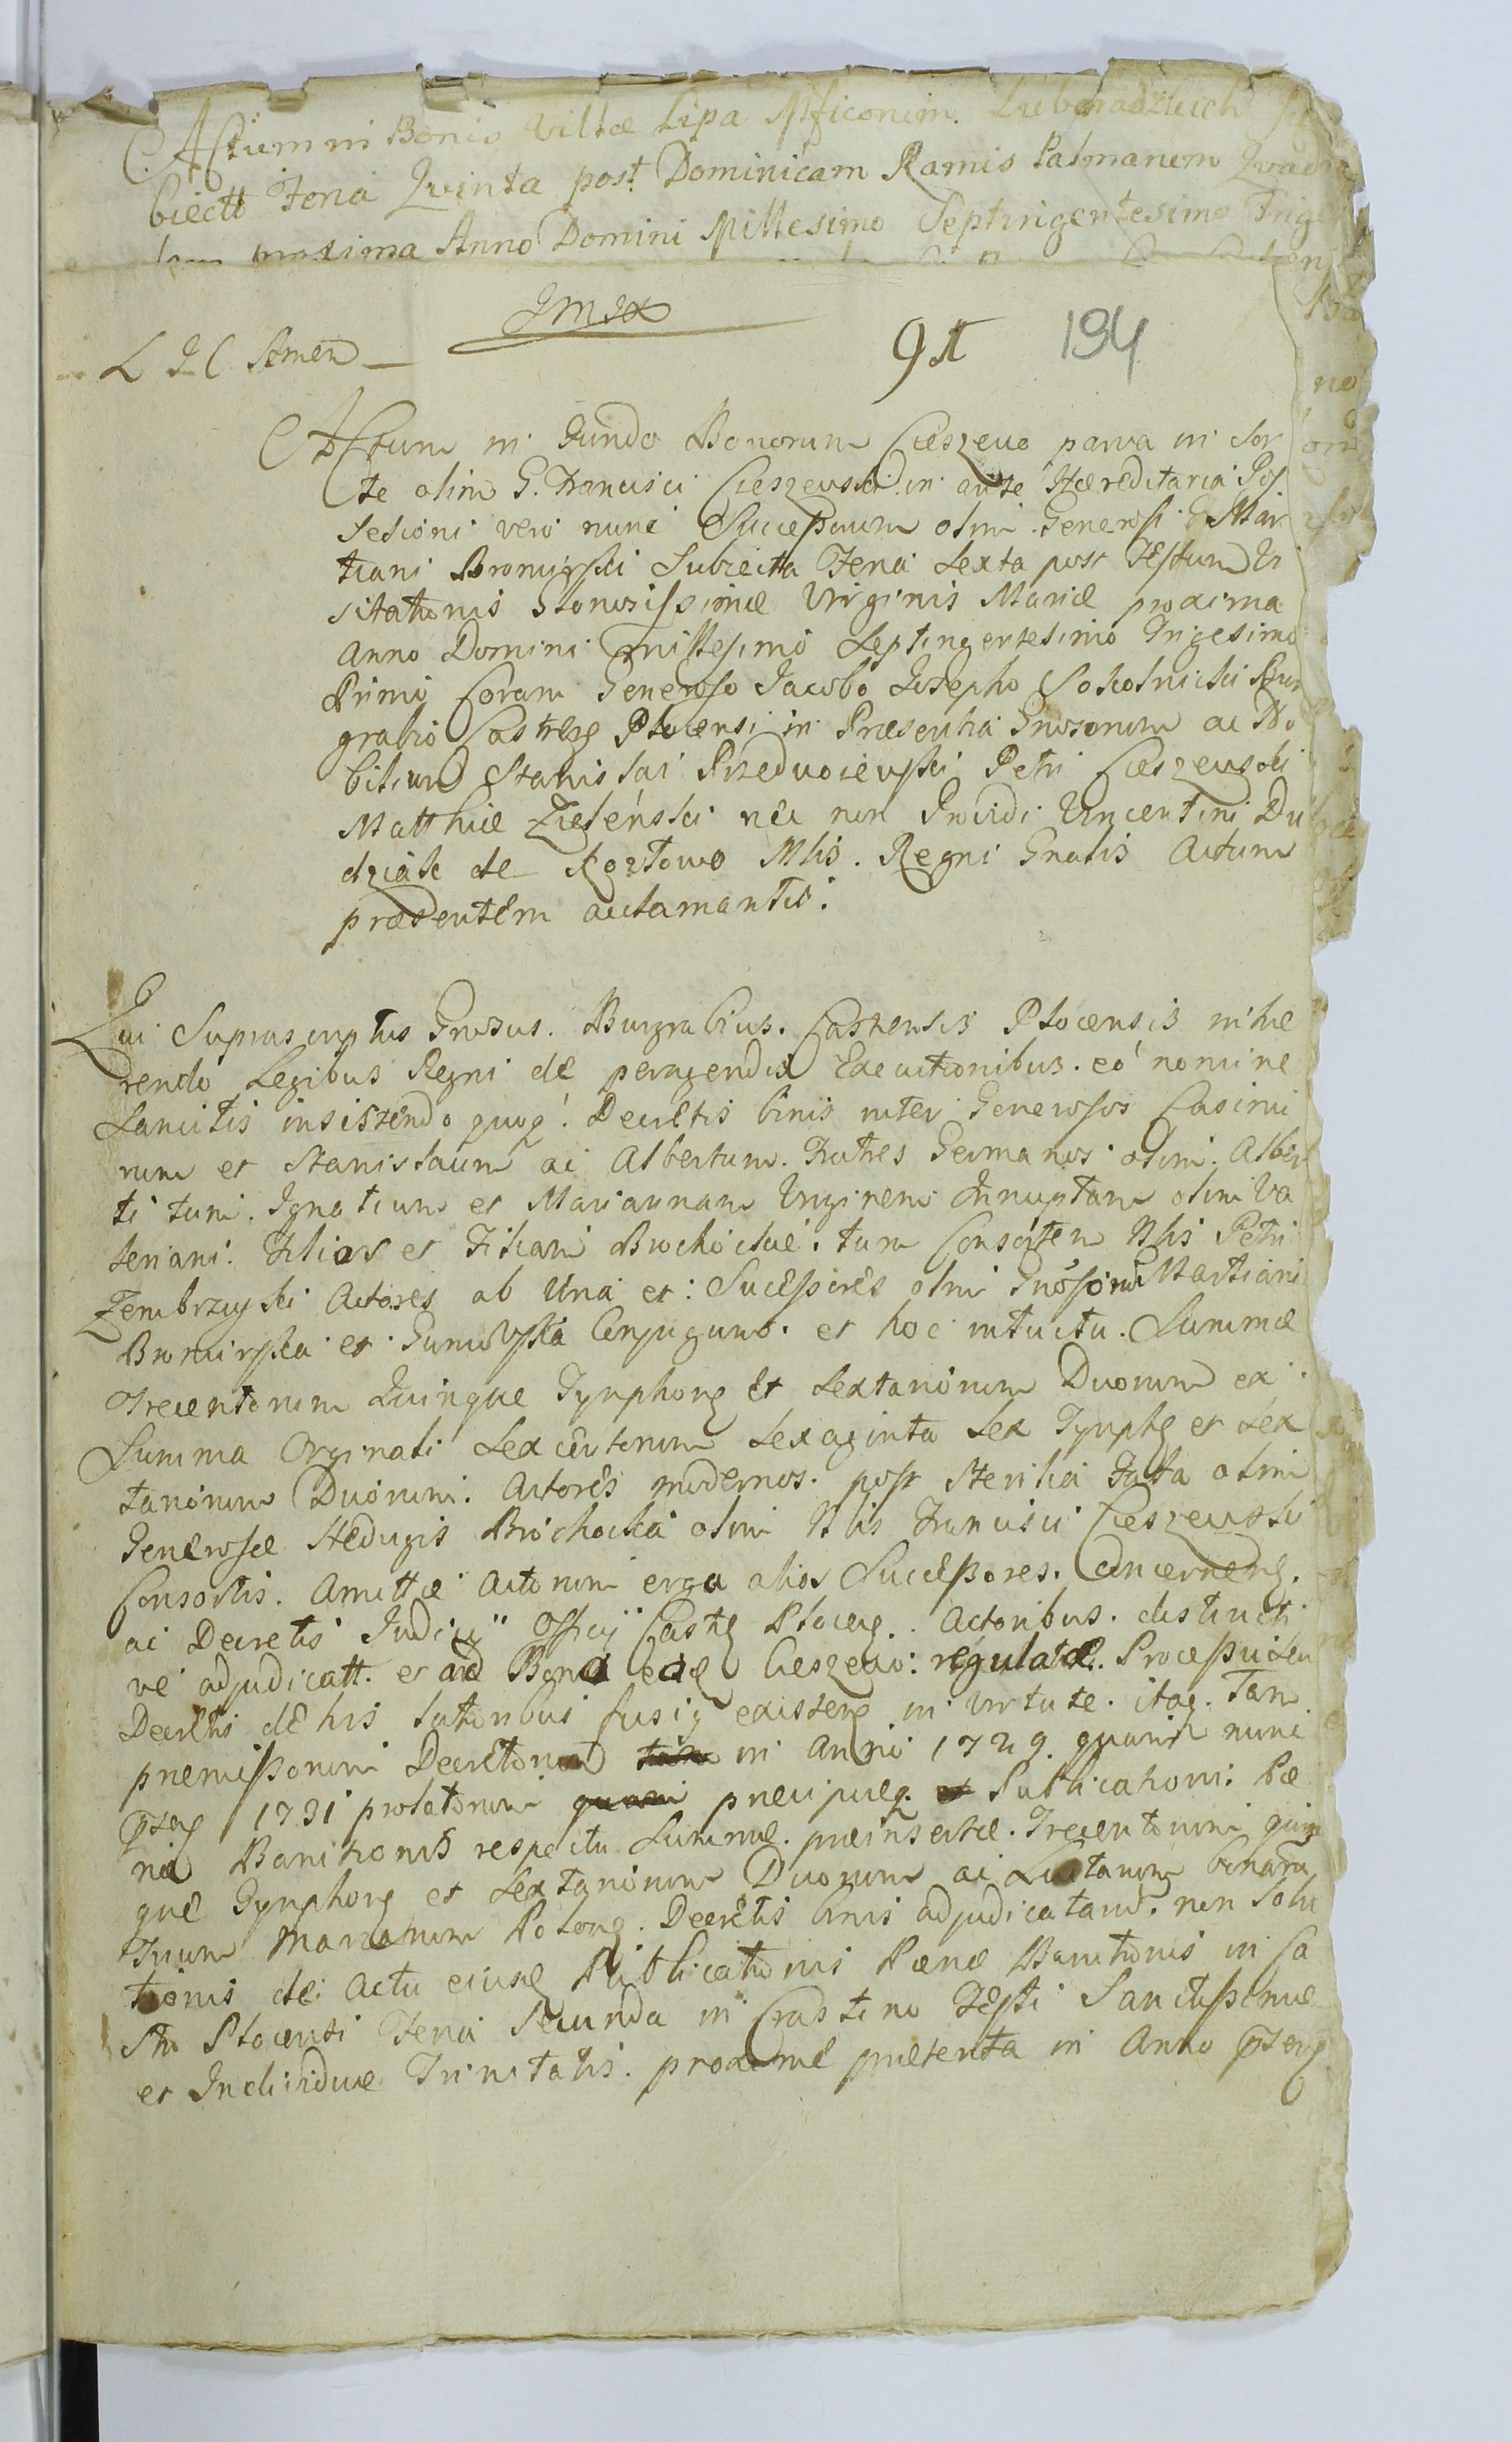 Actum in Bonis Villæ Lipa Mficorum Lieboradzkich
biectt Feria Qvinta post Dominicam Ramis Palmarum
proxima Anno Domini Millesimo Septingentesimo Trige
91 194
L J C Amen
Actum in Fundo Bonorum Cieszewo parva in Sor
te olim G. Francisci Cieszewski in ante Hæreditaria Pos
sesioni vero nunc Successorum olim Generosi Mar
tiani Bromirski Subiectta Feria Sexta post Festum Vi
sitationis Gloriosissimæ Virginis Mariæ proxima
Anno Domini Millesimo Septingentesimo Trigesimo
Primo Coram Generoso Jacobo Josepho Sokolnicki Bur
grabio Castren Plocensi in Præsentia Grosorum ac No
bilium Stanislai Przedwoiewski Petri Cieszewski
Matthiæ Zieleński nec non Providi Vincentini Du
dziak de Kozłowo Mlis. Regni Gnalis Actum
præsentem acclamantis.
Qui Suprascriptus Grosus. Burgrabius. Castrensis Plocensis inhæ
rendo Legibus Regni de peragendis Executionibus. eo nomine
Sancitis insistendo quoq. Decretis binis inter Generosos Casimi
rum et Stanislaum ac Albertum. Fratres Germanos olim. Alber
ti tum. Ignatium et Mariannam Virginem Innuptam olim Va
leriani. Filios et Filiam Brochockie. tum Consortem Nlis Petri
Zembrzuski Actores ab Una et: Successores olim Grosorum Martiani
Bromirski et Conjugum. et hoc intuitu. Summæ
Trecentorum Quinque Tynphong et Sextanorum Duorum ex
Summa Orginali Sexcentorum Sexaginta Sex Tynphg et Sex
tanorum Duorum. Actores modernos. post Sterilia Fatta olim
Generosæ Hedvigis Brochocka olim Nlis Francisci Cieszewski
Consortis. Amittæ Actorum erga alios Successores. Concerneng.
ac Decretis Judicij Officij Castg Ploceng. Actoribus. distincti
ve adjudicatt. et ad Bona eadg Cieszewo: regulatæ. Processu Seu
Decretis de his latoribus fusig existeng in virtute. itaq. Tam
premissorum Decretorum in Anno 1729 quam nunc
pseng 1731 prolatorum precipueg. Publicationi. Pæ
næ Banitionis respectu Summæ. præinsertæ. Trecentorum quin
que Tynphong et Sextanorum Duorum ac Luctarum binaru
Trium Marcarum Polong. Decretis binis adjudicatarum. non Solu
tionis de Actu eiusg Publicationis Pænæ Banitionis in Ca
stro Plocensi Feria Secunda in Crastino Festi Sanctissimæ
et Individuæ Trinitatis. proximæ præterita in Anno pseng